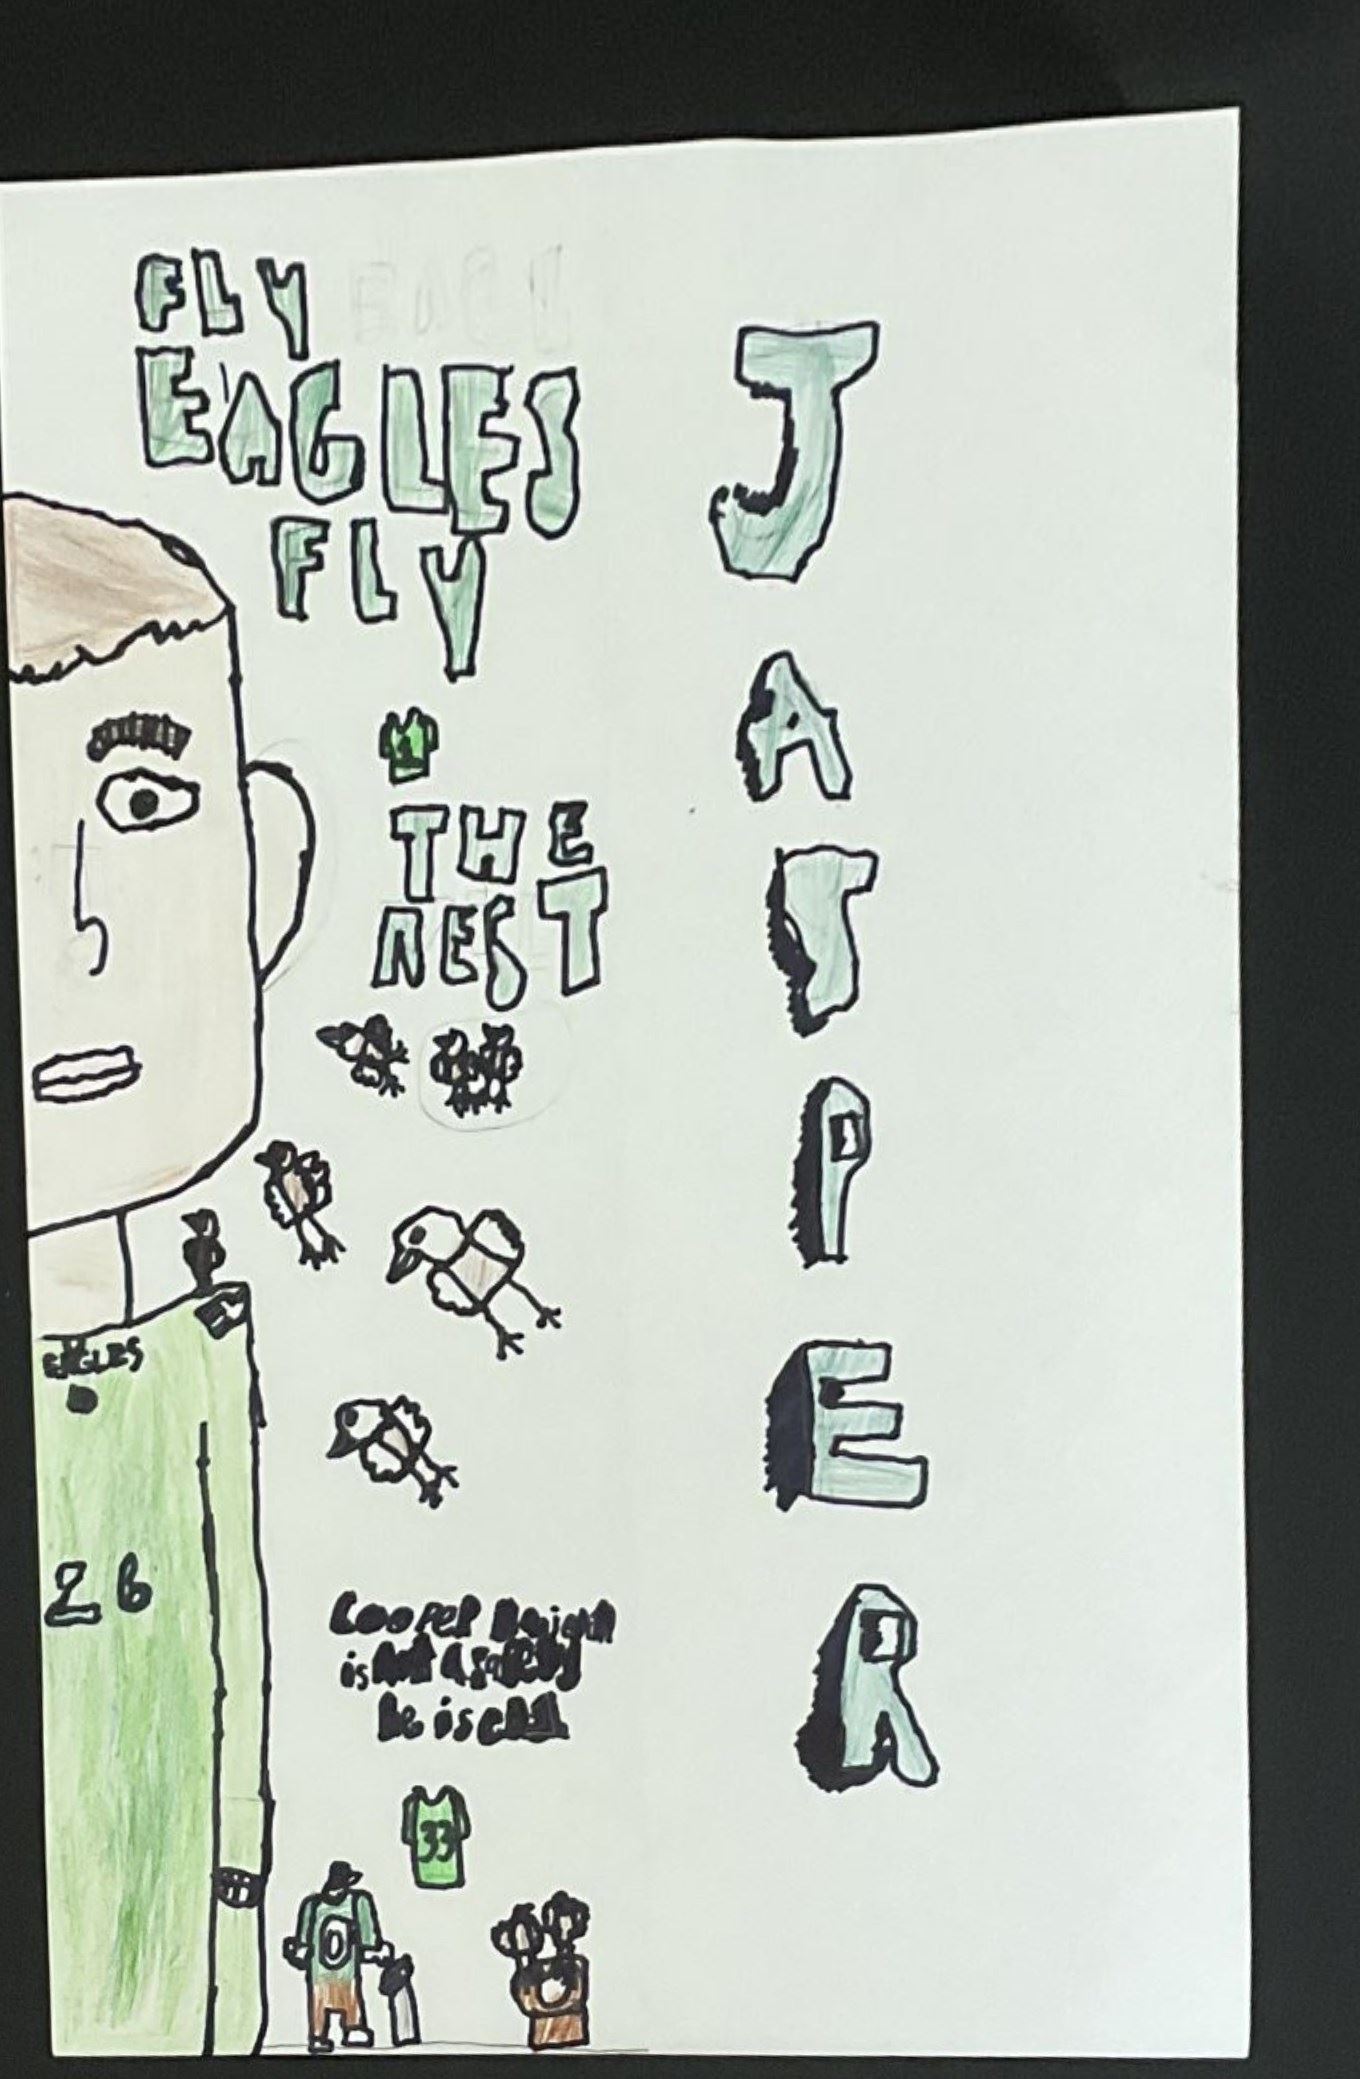 FLY
EAGLES
FLY
THE
NEST
EAGLES
26
Cooper
is not a safety
he is
33
0
J
A
J
P
E
R